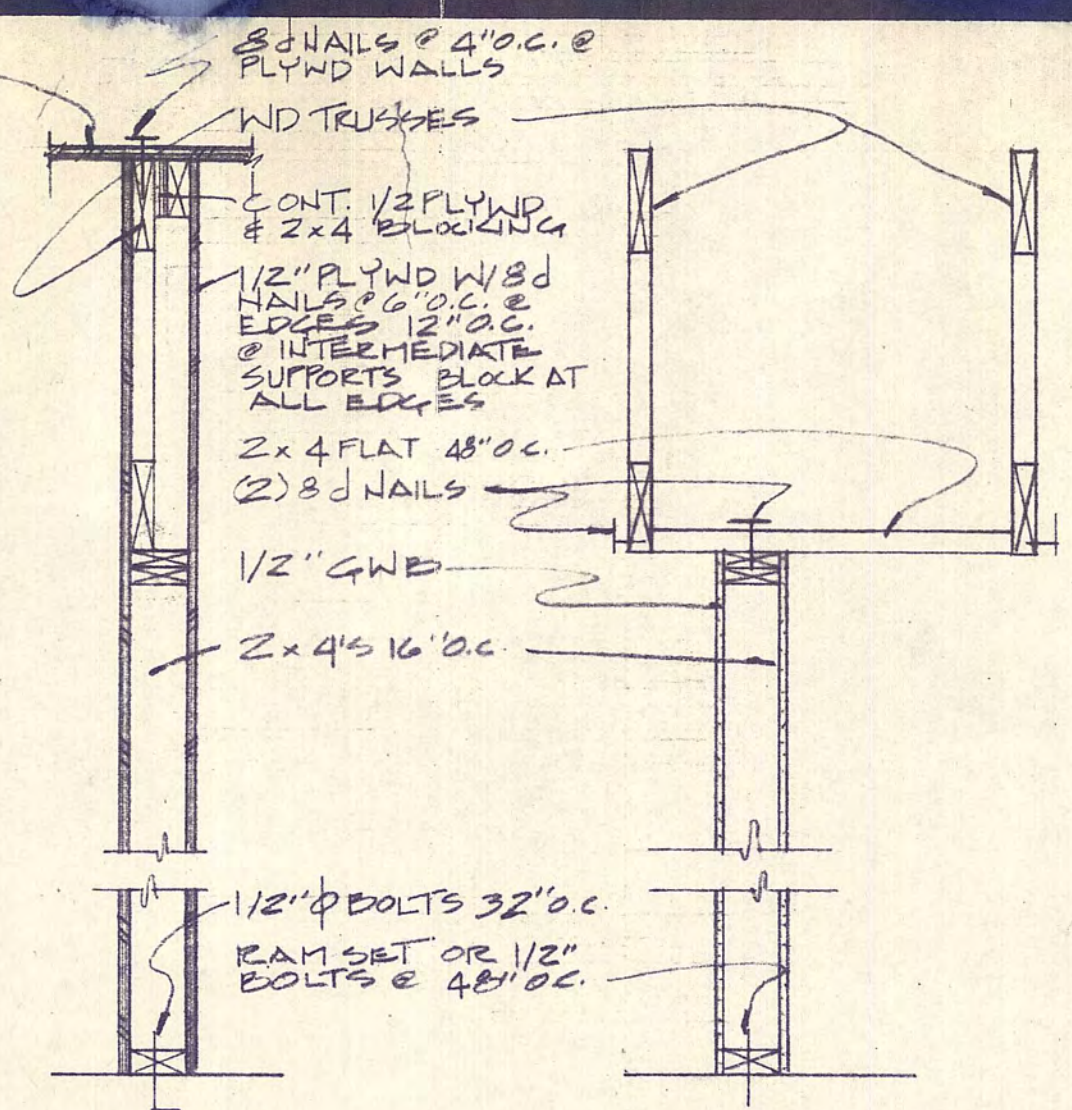 8d NAILS @ 4" O.C. @
PLYWD WALLS
WD TRUSSES
CONT. 1/2 PLYWD
& 2x4 BLOCKING
1/2" PLYWD W/ 8d
NAILS @ 6" O.C. @
EDGES 12" O.C.
@ INTERMEDIATE
SUPPORTS BLOCK AT
ALL EDGES
2x4 FLAT 48" O.C.
(2) 8d NAILS
1/2" GWB
2x4'S 16" O.C.
1/2"ϕ BOLTS 32" O.C.
RAM SET OR 1/2"
BOLTS @ 48" O.C.